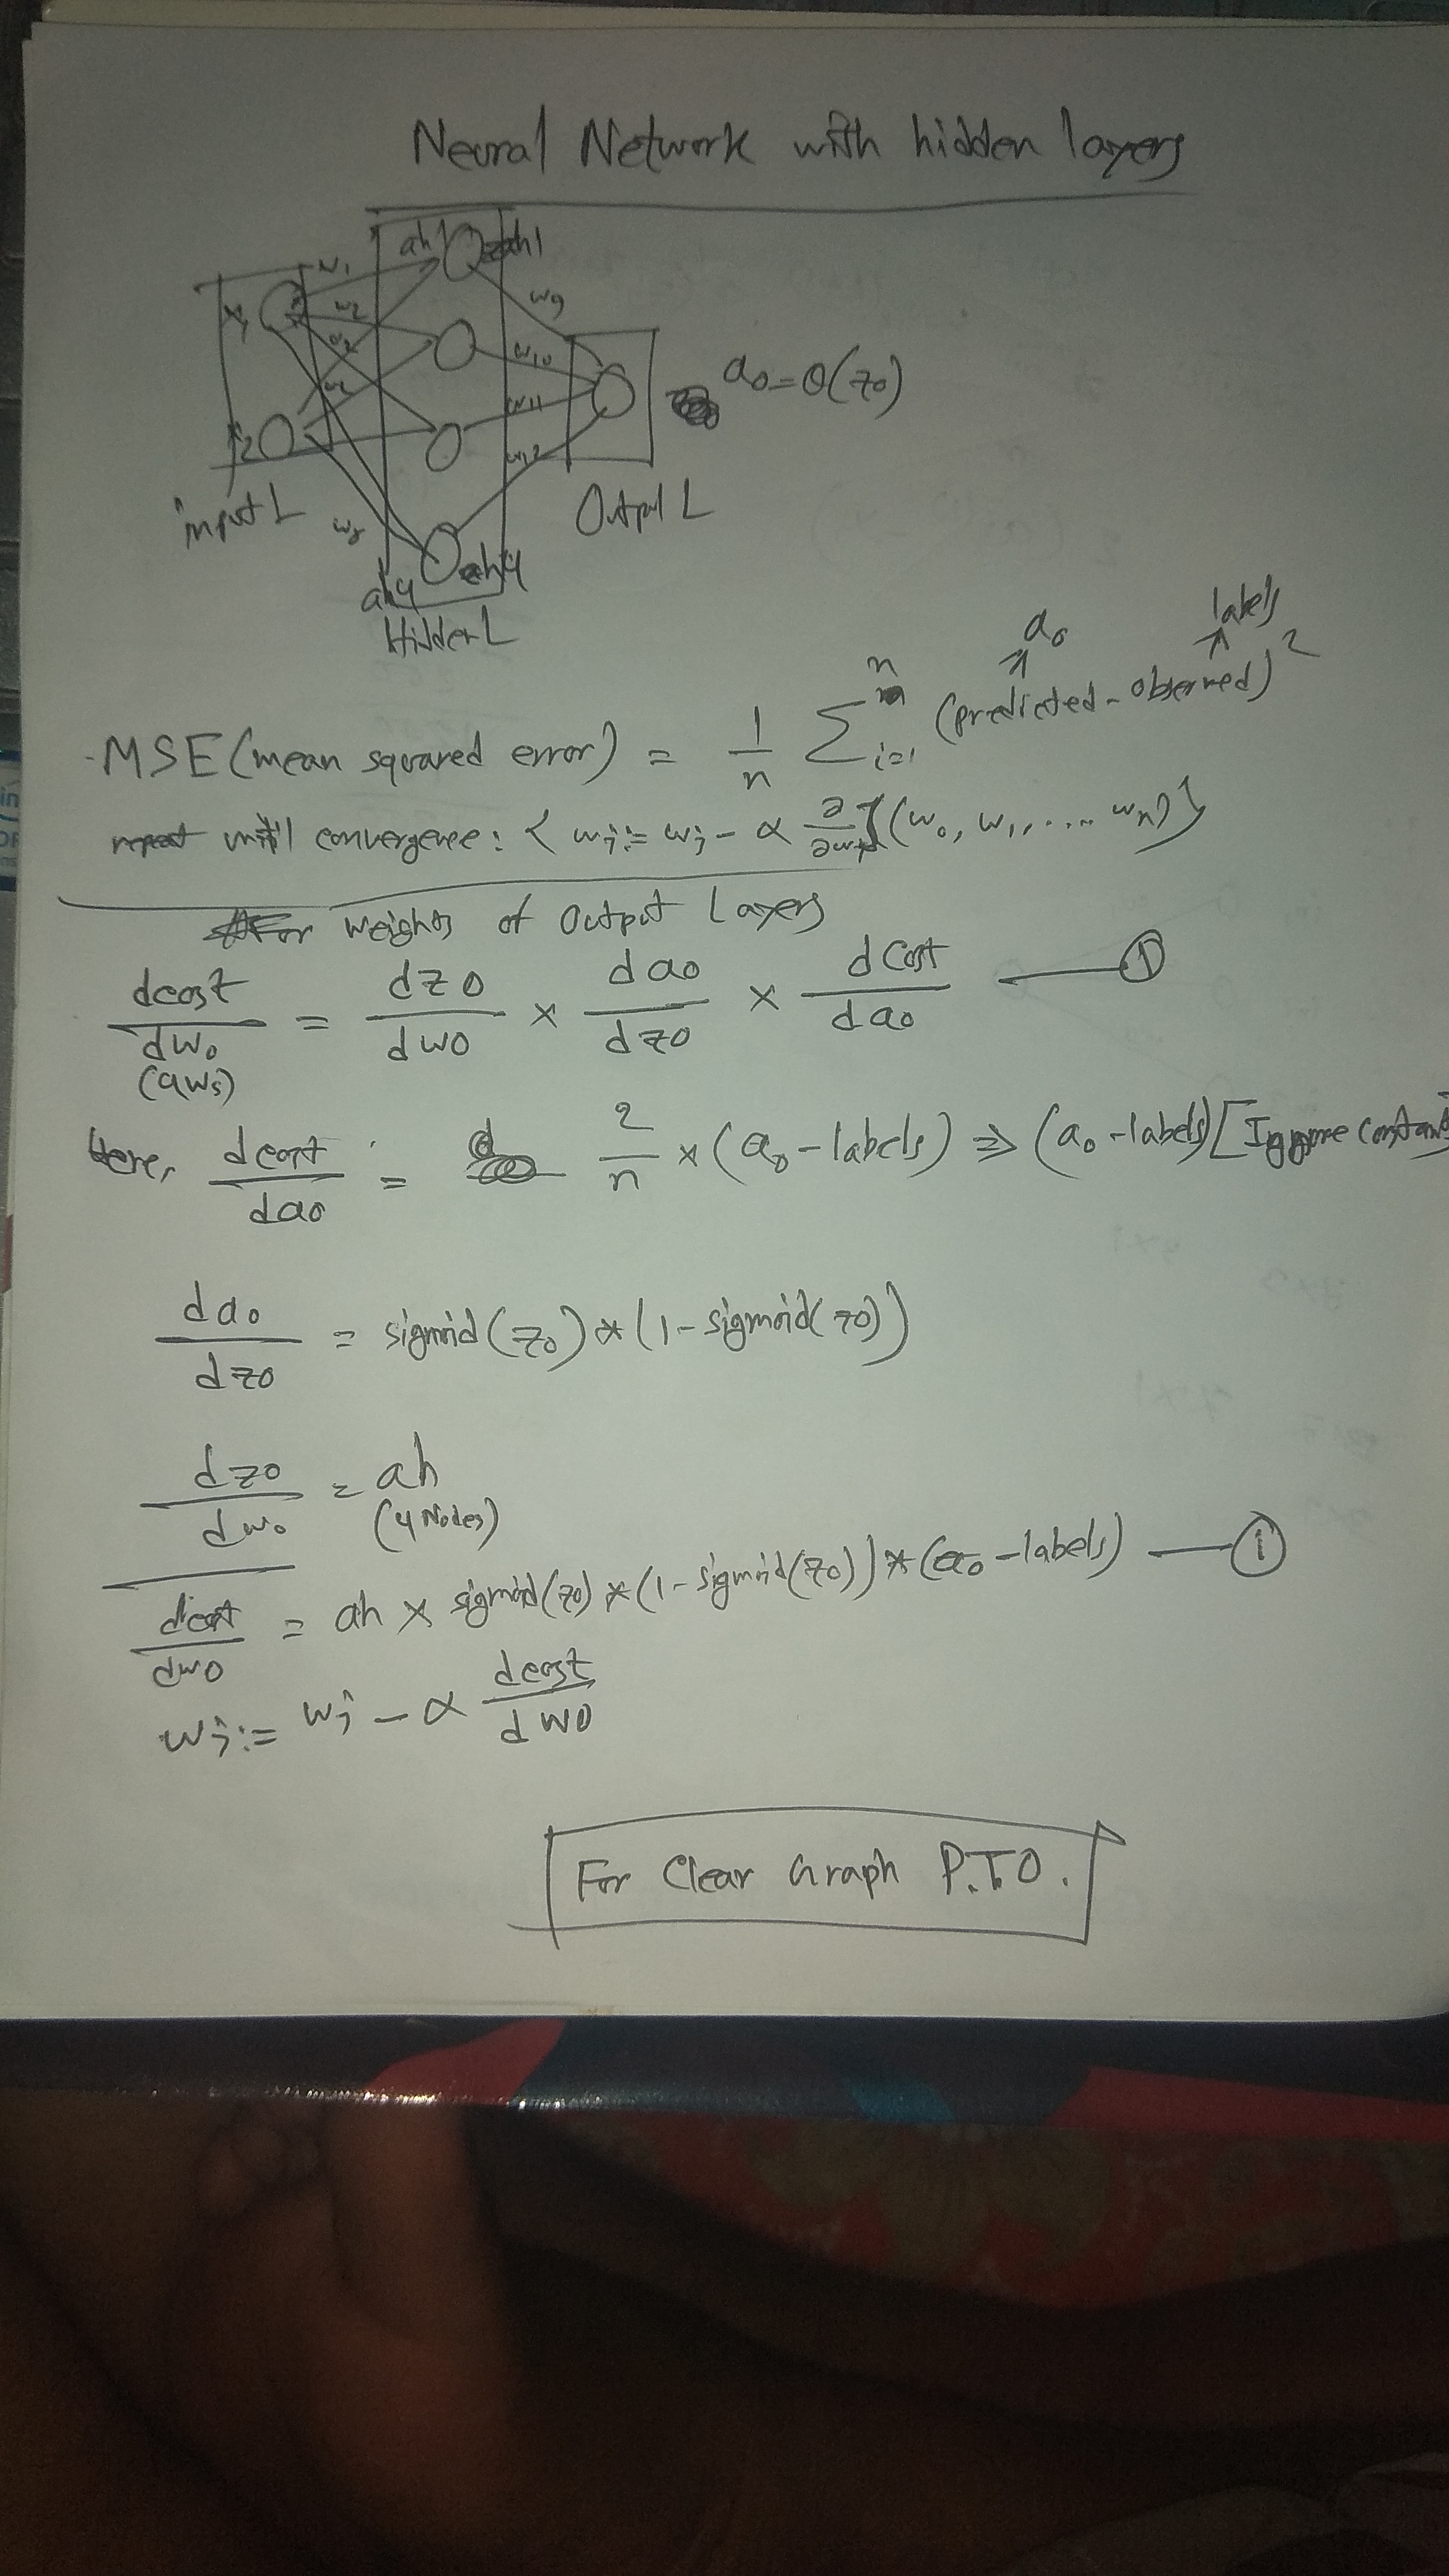 Neural Network with hidden layers
ah1
w1
w2
w9
x1
w10
a0 = σ(z0)
w11
x2
w12
input L
Output L
w8
ah4
Hidden L
a0 labels
MSE (mean squared error) = 1/n Σ i=1 n (predicted - observed)²
repeat until convergence: { wj := wj - α ∂/∂wj J(w0, w1, .... wn) }
For weights of Output Layers
dcost/dw0 = dz0/dw0 × da0/dz0 × dcost/da0 — ①
Here, dcost/da0 = 2/n × (a0 - labels) ⇒ (a0 - labels) [Iggnore Constant
da0/dz0 = sigmoid(z0) * (1 - sigmoid(z0))
dz0/dw0 = ah
(4 Nodes)
dcost/dw0 = ah × sigmoid(z0) * (1 - sigmoid(z0)) * (a0 - labels) — ①
wj := wj - α dcost/dw0
For Clear Graph P.T.O.